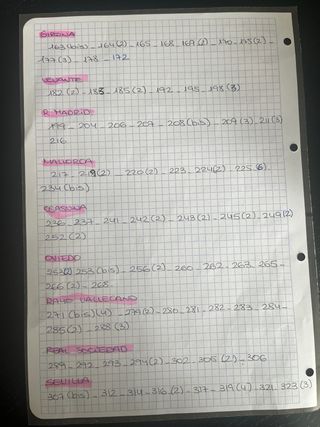 GIRONA
163(bis) - 164(2) - 165 - 168 - 169(2) - 170 - 175(2) -
177(3) - 178 - 172
LEVANTE
182(2) - 183 - 185(2) - 192 - 195 - 198(3)
R. MADRID
199 - 204 - 206 - 207 - 208(bis) - 209(3) - 211(3)
216
MALLORCA
217 - 219(2) - 220(2) - 223 - 224(2) - 225(6).
234(bis)
OSASUNA
236 - 237 - 241 - 242(2) - 243(2) - 245(2) - 249(2)
252(2)
OVIEDO
253(2) 253(bis) - 256(2) - 260 - 262 - 263 - 265 -
266(2) - 268
RAYO VALLECANO
271(bis)(4) - 279(2) - 280 - 281 - 282 - 283 - 284 -
285(2) - 288(3)
REAL SOCIEDAD
289 - 292 - 293 - 294(2) - 302 - 305(2) - 306
SEVILLA
307(bis) - 312 - 314 - 316(2) - 317 - 319(4) - 321 - 323(3)